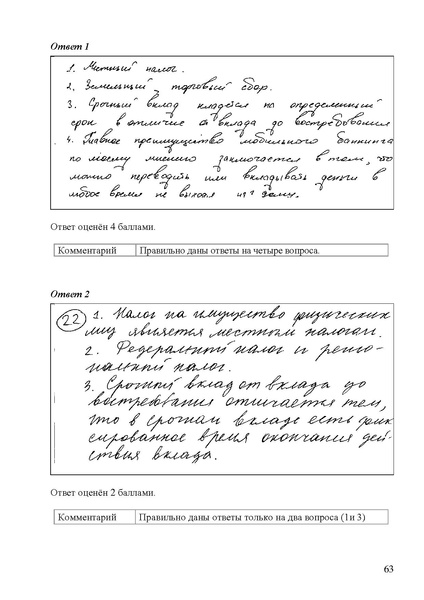 Ответ 1
1. Местный налог.
2. Земельный, торговый сбор.
3. Срочный вклад кладётся на определённый
срок в отличие от вклада до востребования
4. Главное преимущество мобильного банкинга
по моему мнению заключается в том, что
можно переводить или вкладывать деньги в
любое время не выходя из дома.
Ответ оценён 4 баллами.
Комментарий Правильно даны ответы на четыре вопроса.
Ответ 2
22 1. Налог на имущество физических
лиц является местным налогом.
2. Федеральный налог и регио-
нальный налог.
3. Срочный вклад от вклада до
востребования отличается тем,
что в срочном вкладе есть фик
сированное время окончания дей-
ствия вклада.
Ответ оценён 2 баллами.
Комментарий Правильно даны ответы только на два вопроса (1и 3)
63